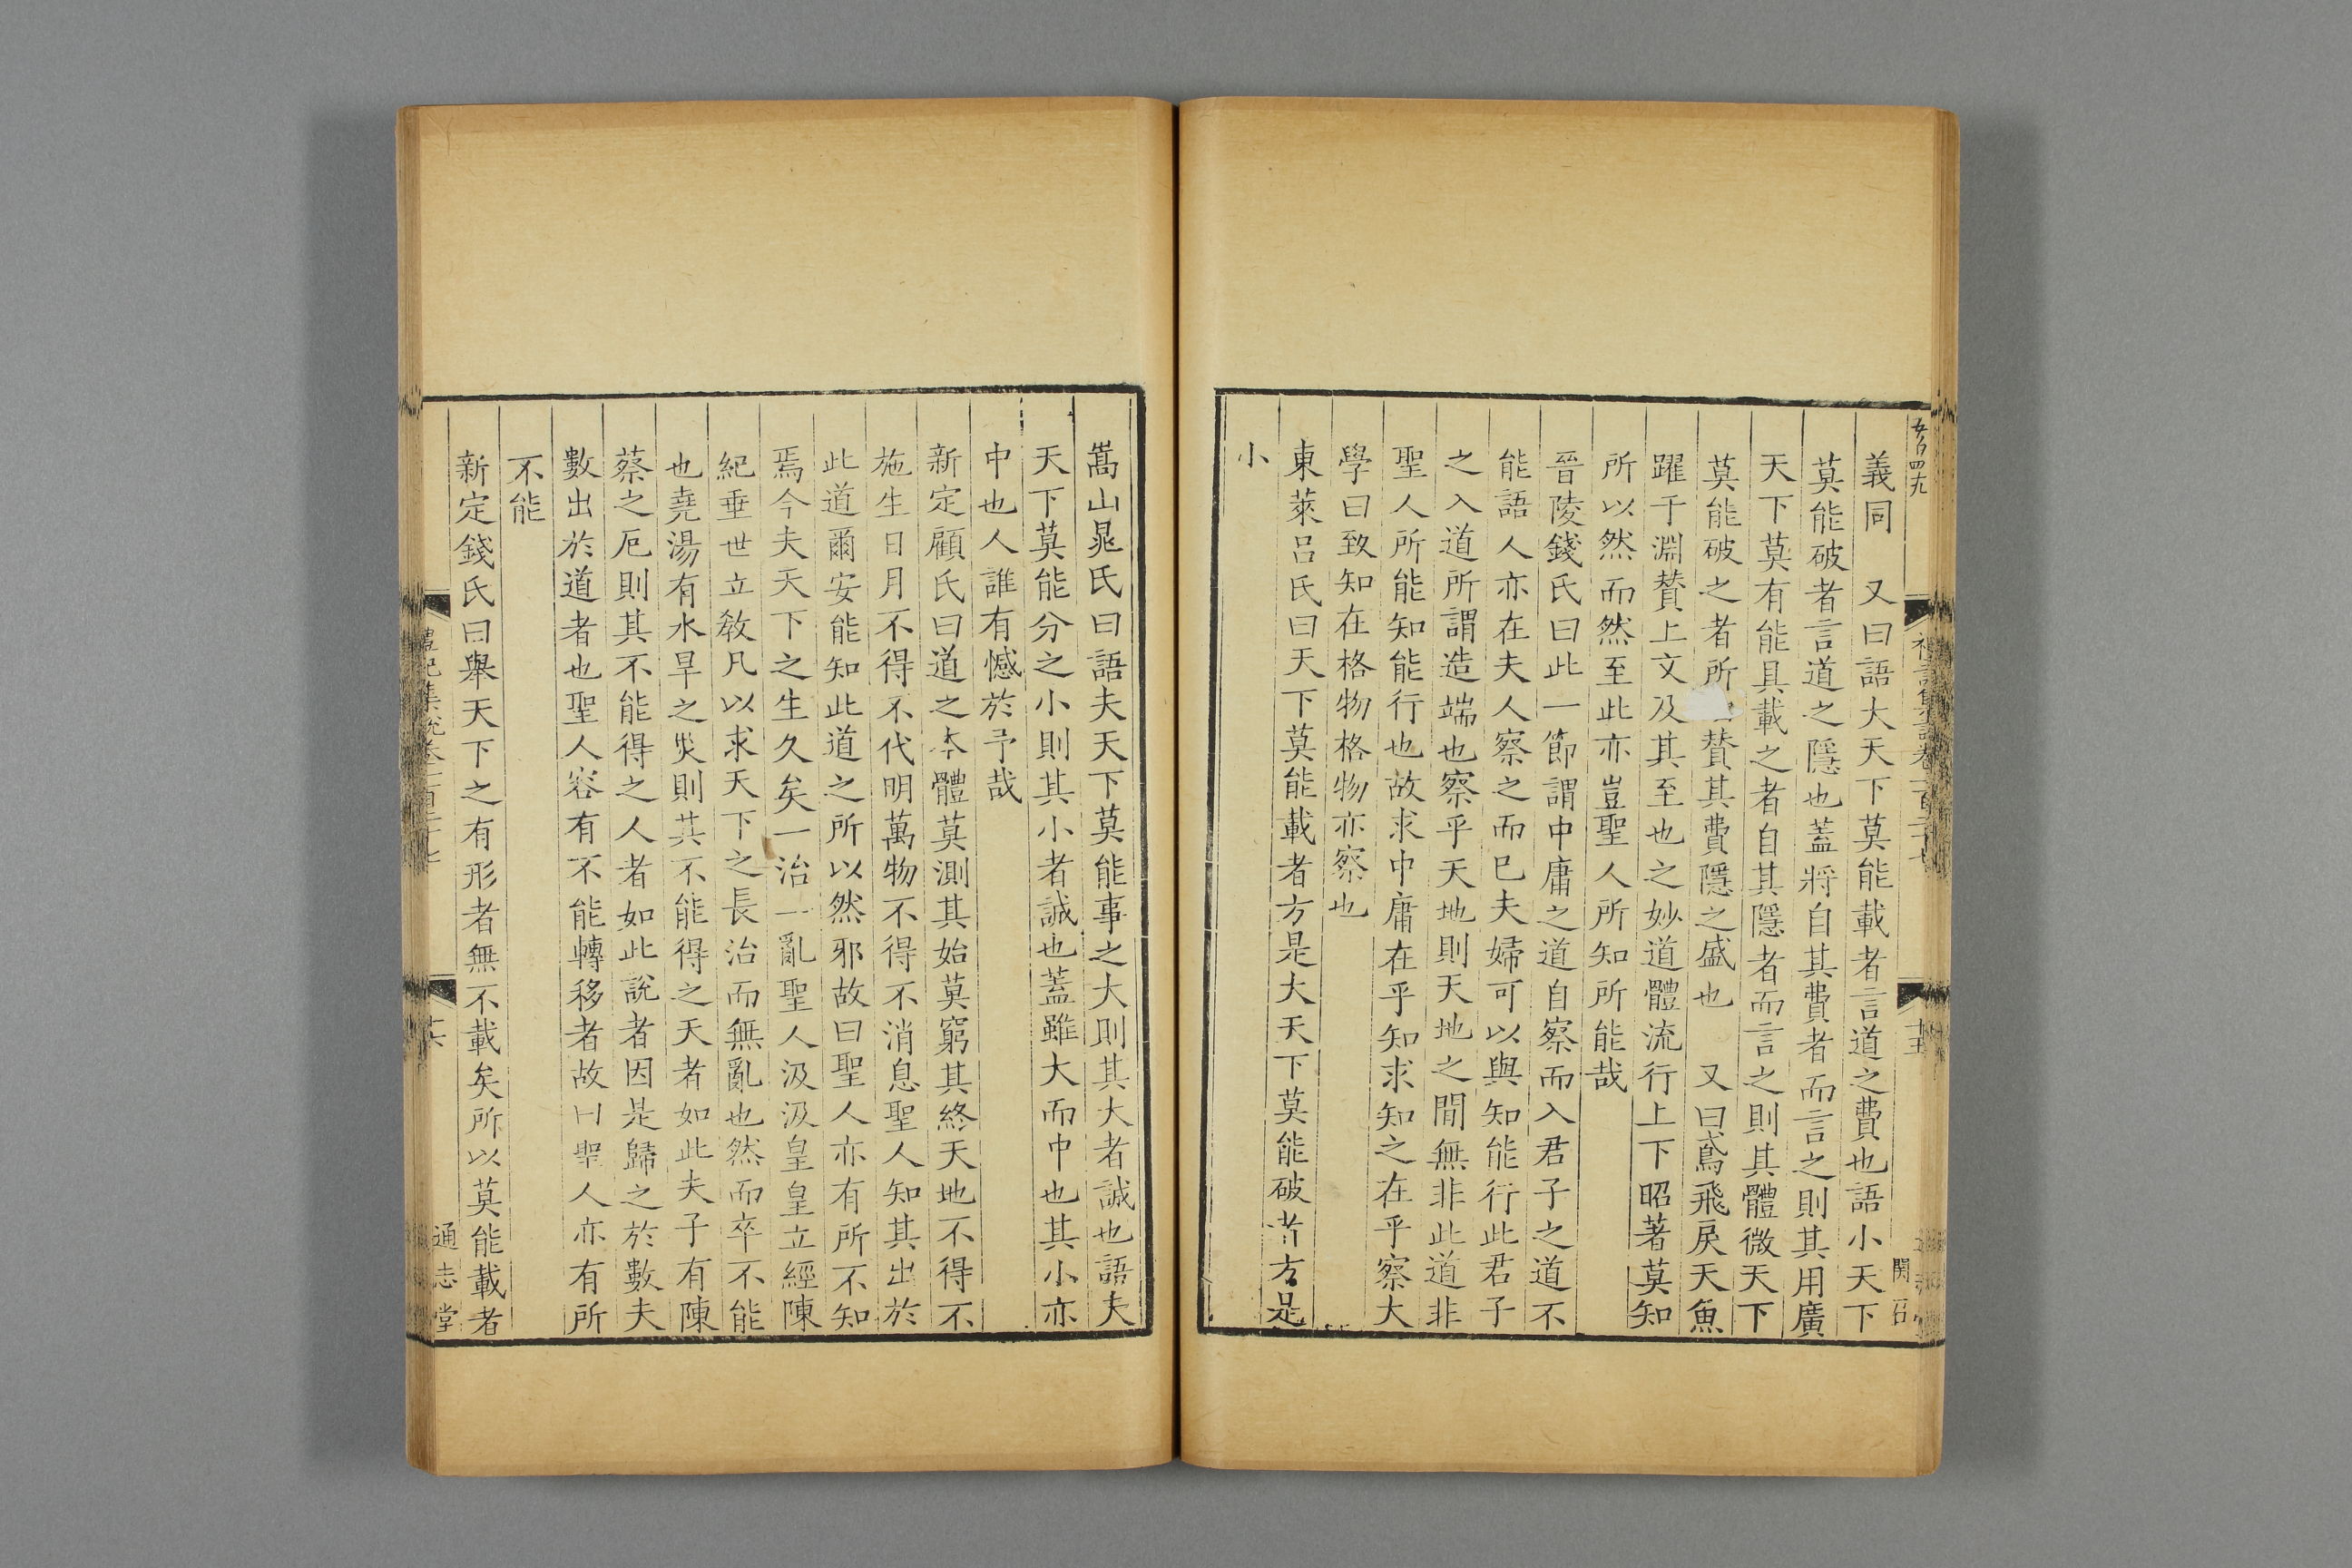 義同 又曰語大天下莫能載者言道之費也語小天下
莫能破者言道之隱也蓋將自其費者而言之則其用廣
天下莫有能具載之者自其隱者而言之則其體微天下
莫能破之者所 賛其費隱之盛也 又曰鳶飛戾天魚
躍于淵賛上文及其至也之妙道體流行上下昭著莫知
所以然而然至此亦豈聖人所知所能哉
晉陵錢氏曰此一節謂中庸之道自察而入君子之道不
能語人亦在夫人察之而已夫婦可以與知能行此君子
之入道所謂造端也察乎天地則天地之間無非此道非
聖人所能知能行也故求中庸在乎知求知之在乎察大
學曰致知在格物格物亦察也
東萊呂氏曰天下莫能載者方是大天下莫能破者方是
小
嵩山晁氏曰語夫天下莫能事之大則其大者誠也語夫
天下莫能分之小則其小者誠也蓋雖大而中也其小亦
中也人誰有憾於予哉
新定顧氏曰道之本體莫測其始莫窮其終天地不得不
施生日月不得不代明萬物不得不消息聖人知其出於
此道爾安能知此道之所以然邪故曰聖人亦有所不知
焉今夫天下之生久矣一治一亂聖人汲汲皇皇立經陳
紀垂世立敎凡以求天下之長治而無亂也然而卒不能
也堯湯有水旱之災則其不能得之天者如此夫子有陳
蔡之厄則其不能得之人者如此說者因是歸之於數夫
數出於道者也聖人容有不能轉移者故曰聖人亦有所
不能
新定錢氏曰舉天下之有形者無不載矣所以莫能載者
禮記集說卷一百二十七
十六
通志堂